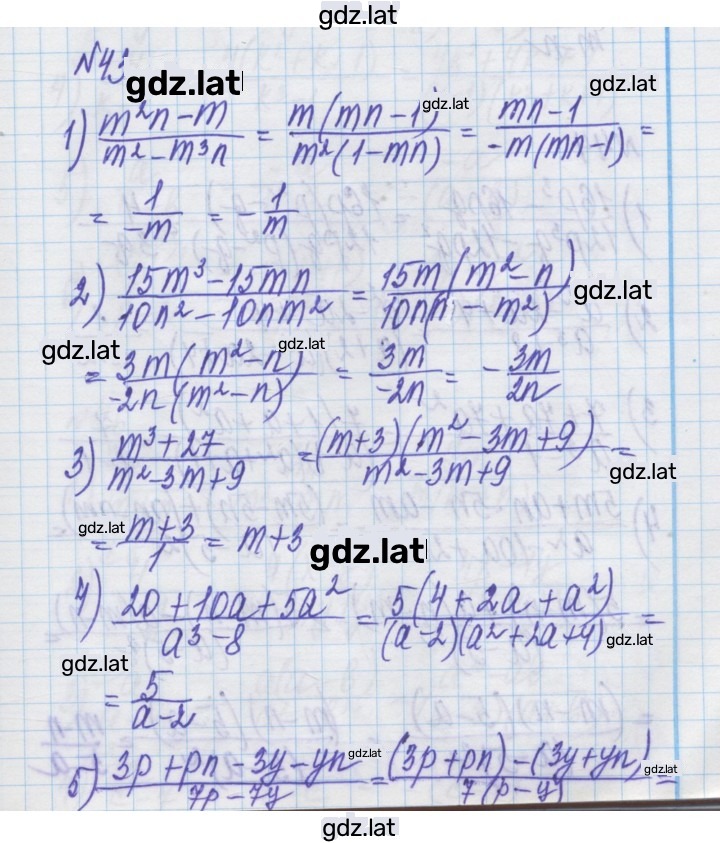 gdz.lat
№43
gdz.lat
1) (m²n - m)/(m² - m³n) = m(mn - 1)/(m²(1 - mn)) = (mn - 1)/(-m(mn - 1)) =
gdz.lat
gdz.lat
= 1/(-m) = - 1/m
2) (15m³ - 15mn)/(10n² - 10nm²) = 15m(m² - n)/(10n(n - m²))
gdz.lat
gdz.lat
gdz.lat
= 3m(m² - n)/(-2n(m² - n)) = 3m/(-2n) = - 3m/(2n)
3) (m³ + 27)/(m² - 3m + 9) = (m + 3)(m² - 3m + 9)/(m² - 3m + 9) =
gdz.lat
gdz.lat
= (m + 3)/1 = m + 3
gdz.lat
4) (20 + 10a + 5a²)/(a³ - 8) = 5(4 + 2a + a²)/((a - 2)(a² + 2a + 4)) =
gdz.lat
gdz.lat
= 5/(a - 2)
5) (3p + pn - 3y - yn)/(7p - 7y) = ((3p + pn) - (3y + yn))/(7(p - y)) =
gdz.lat
gdz.lat
gdz.lat